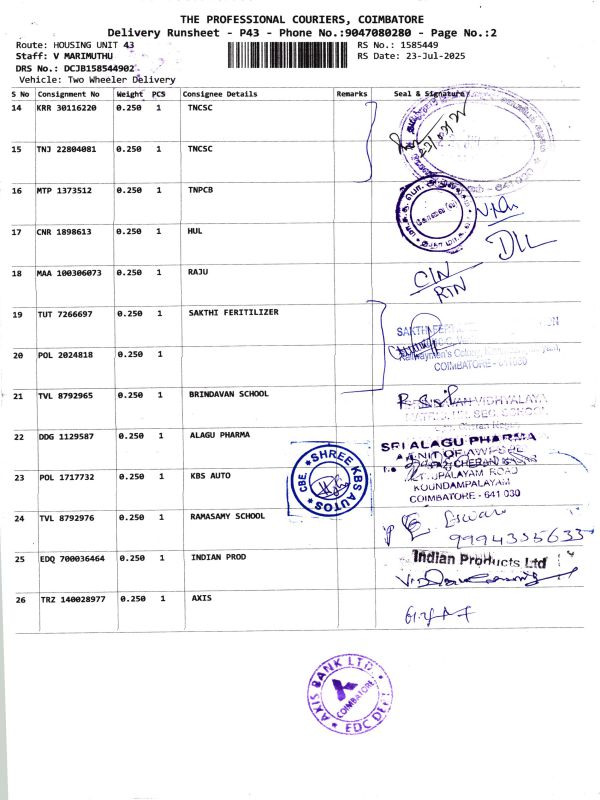 THE PROFESSIONAL COURIERS, COIMBATORE
Delivery Runsheet - P43 - Phone No.:9047080280 - Page No.:2
Route: HOUSING UNIT 43
RS No.: 1585449
Staff: V MARIMUTHU
RS Date: 23-Jul-2025
DRS No.: DCJB158544902
Vehicle: Two Wheeler Delivery
S No Consignment No Weight PCS Consignee Details Remarks Seal & Signature
14 KRR 30116220 0.250 1 TNCSC
15 TNJ 22804081 0.250 1 TNCSC
16 MTP 1373512 0.250 1 TNPCB
17 CNR 1898613 0.250 1 HUL
18 MAA 100306073 0.250 1 RAJU
19 TUT 7266697 0.250 1 SAKTHI FERITILIZER
COIMBATORE - 641 030
20 POL 2024818 0.250 1
21 TVL 8792965 0.250 1 BRINDAVAN SCHOOL
22 DDG 1129587 0.250 1 ALAGU PHARMA
SRI ALAGU PHARMA
KOUNDAMPALAYAM
COIMBATORE - 641 030
23 POL 1717732 0.250 1 KBS AUTO
SHREE KBS AUTOS
CBE.
24 TVL 8792976 0.250 1 RAMASAMY SCHOOL
25 EDQ 700036464 0.250 1 INDIAN PROD
Indian Products Ltd
26 TRZ 140028977 0.250 1 AXIS
AXIS BANK LTD.
COIMBATORE